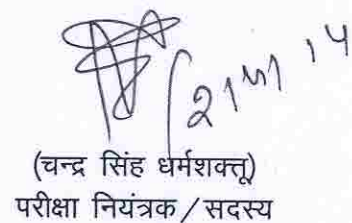 (चन्द्र सिंह धर्मशक्तू)
परीक्षा नियंत्रक/सदस्य